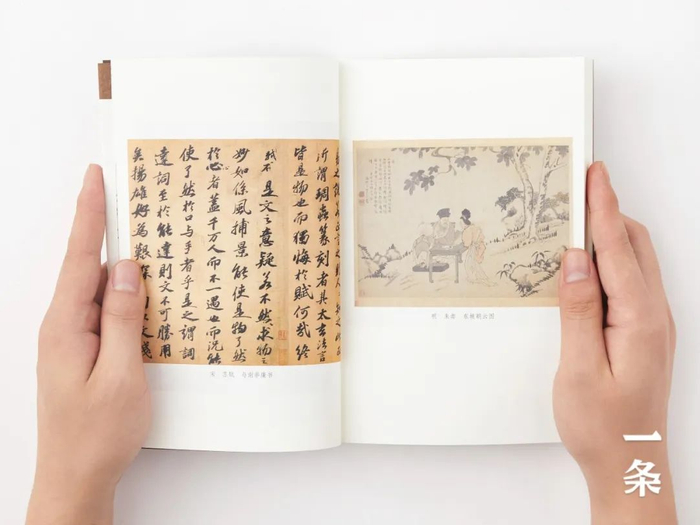 所謂琱蟲篆刻者其太玄法言
皆是物也而獨悔於賦何哉終
不是文之意疑若不然求物之
妙如係風捕景能使是物了然
於心者蓋千万人而不一遇也而況能
使了然於口与手者乎是之謂詞
達詞至於能達則文不可勝用
矣揚雄好為艱 以文淺
宋 苏轼
东坡朝云图
一条